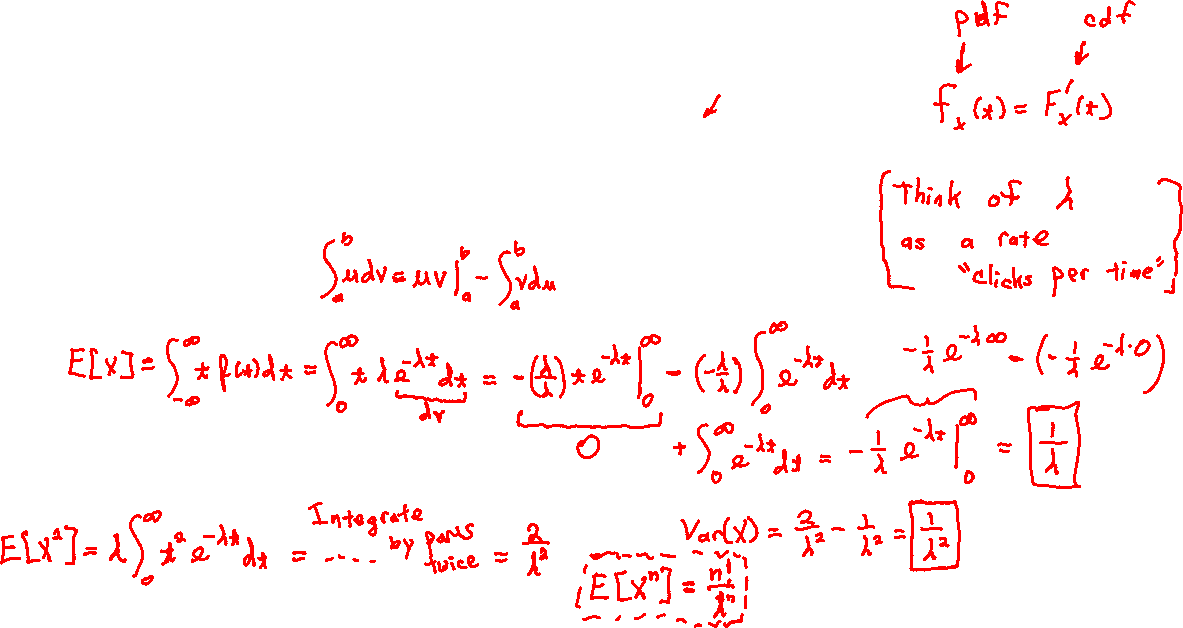 pdf cdf
f_x(t) = F'_x(t)
[Think of λ
as a rate
"clicks per time"]
∫_a^b u dv = uv |_a^b - ∫_a^b v du
E[X] = ∫_{-∞}^{∞} t f(t) dt = ∫_0^∞ t λ e^{-λt} dt = -(λ/λ) t e^{-λt} |_0^∞ - (-λ/λ) ∫_0^∞ e^{-λt} dt
dv
0
-1/λ e^{-λ∞} - (-1/λ e^{-λ·0})
+ ∫_0^∞ e^{-λt} dt = -1/λ e^{-λt} |_0^∞ = 1/λ
E[X²] = λ ∫_0^∞ t² e^{-λt} dt = .... Integrate by parts twice = 2/λ²
Var(X) = 2/λ² - 1/λ² = 1/λ²
E[Xⁿ] = n!/λⁿ